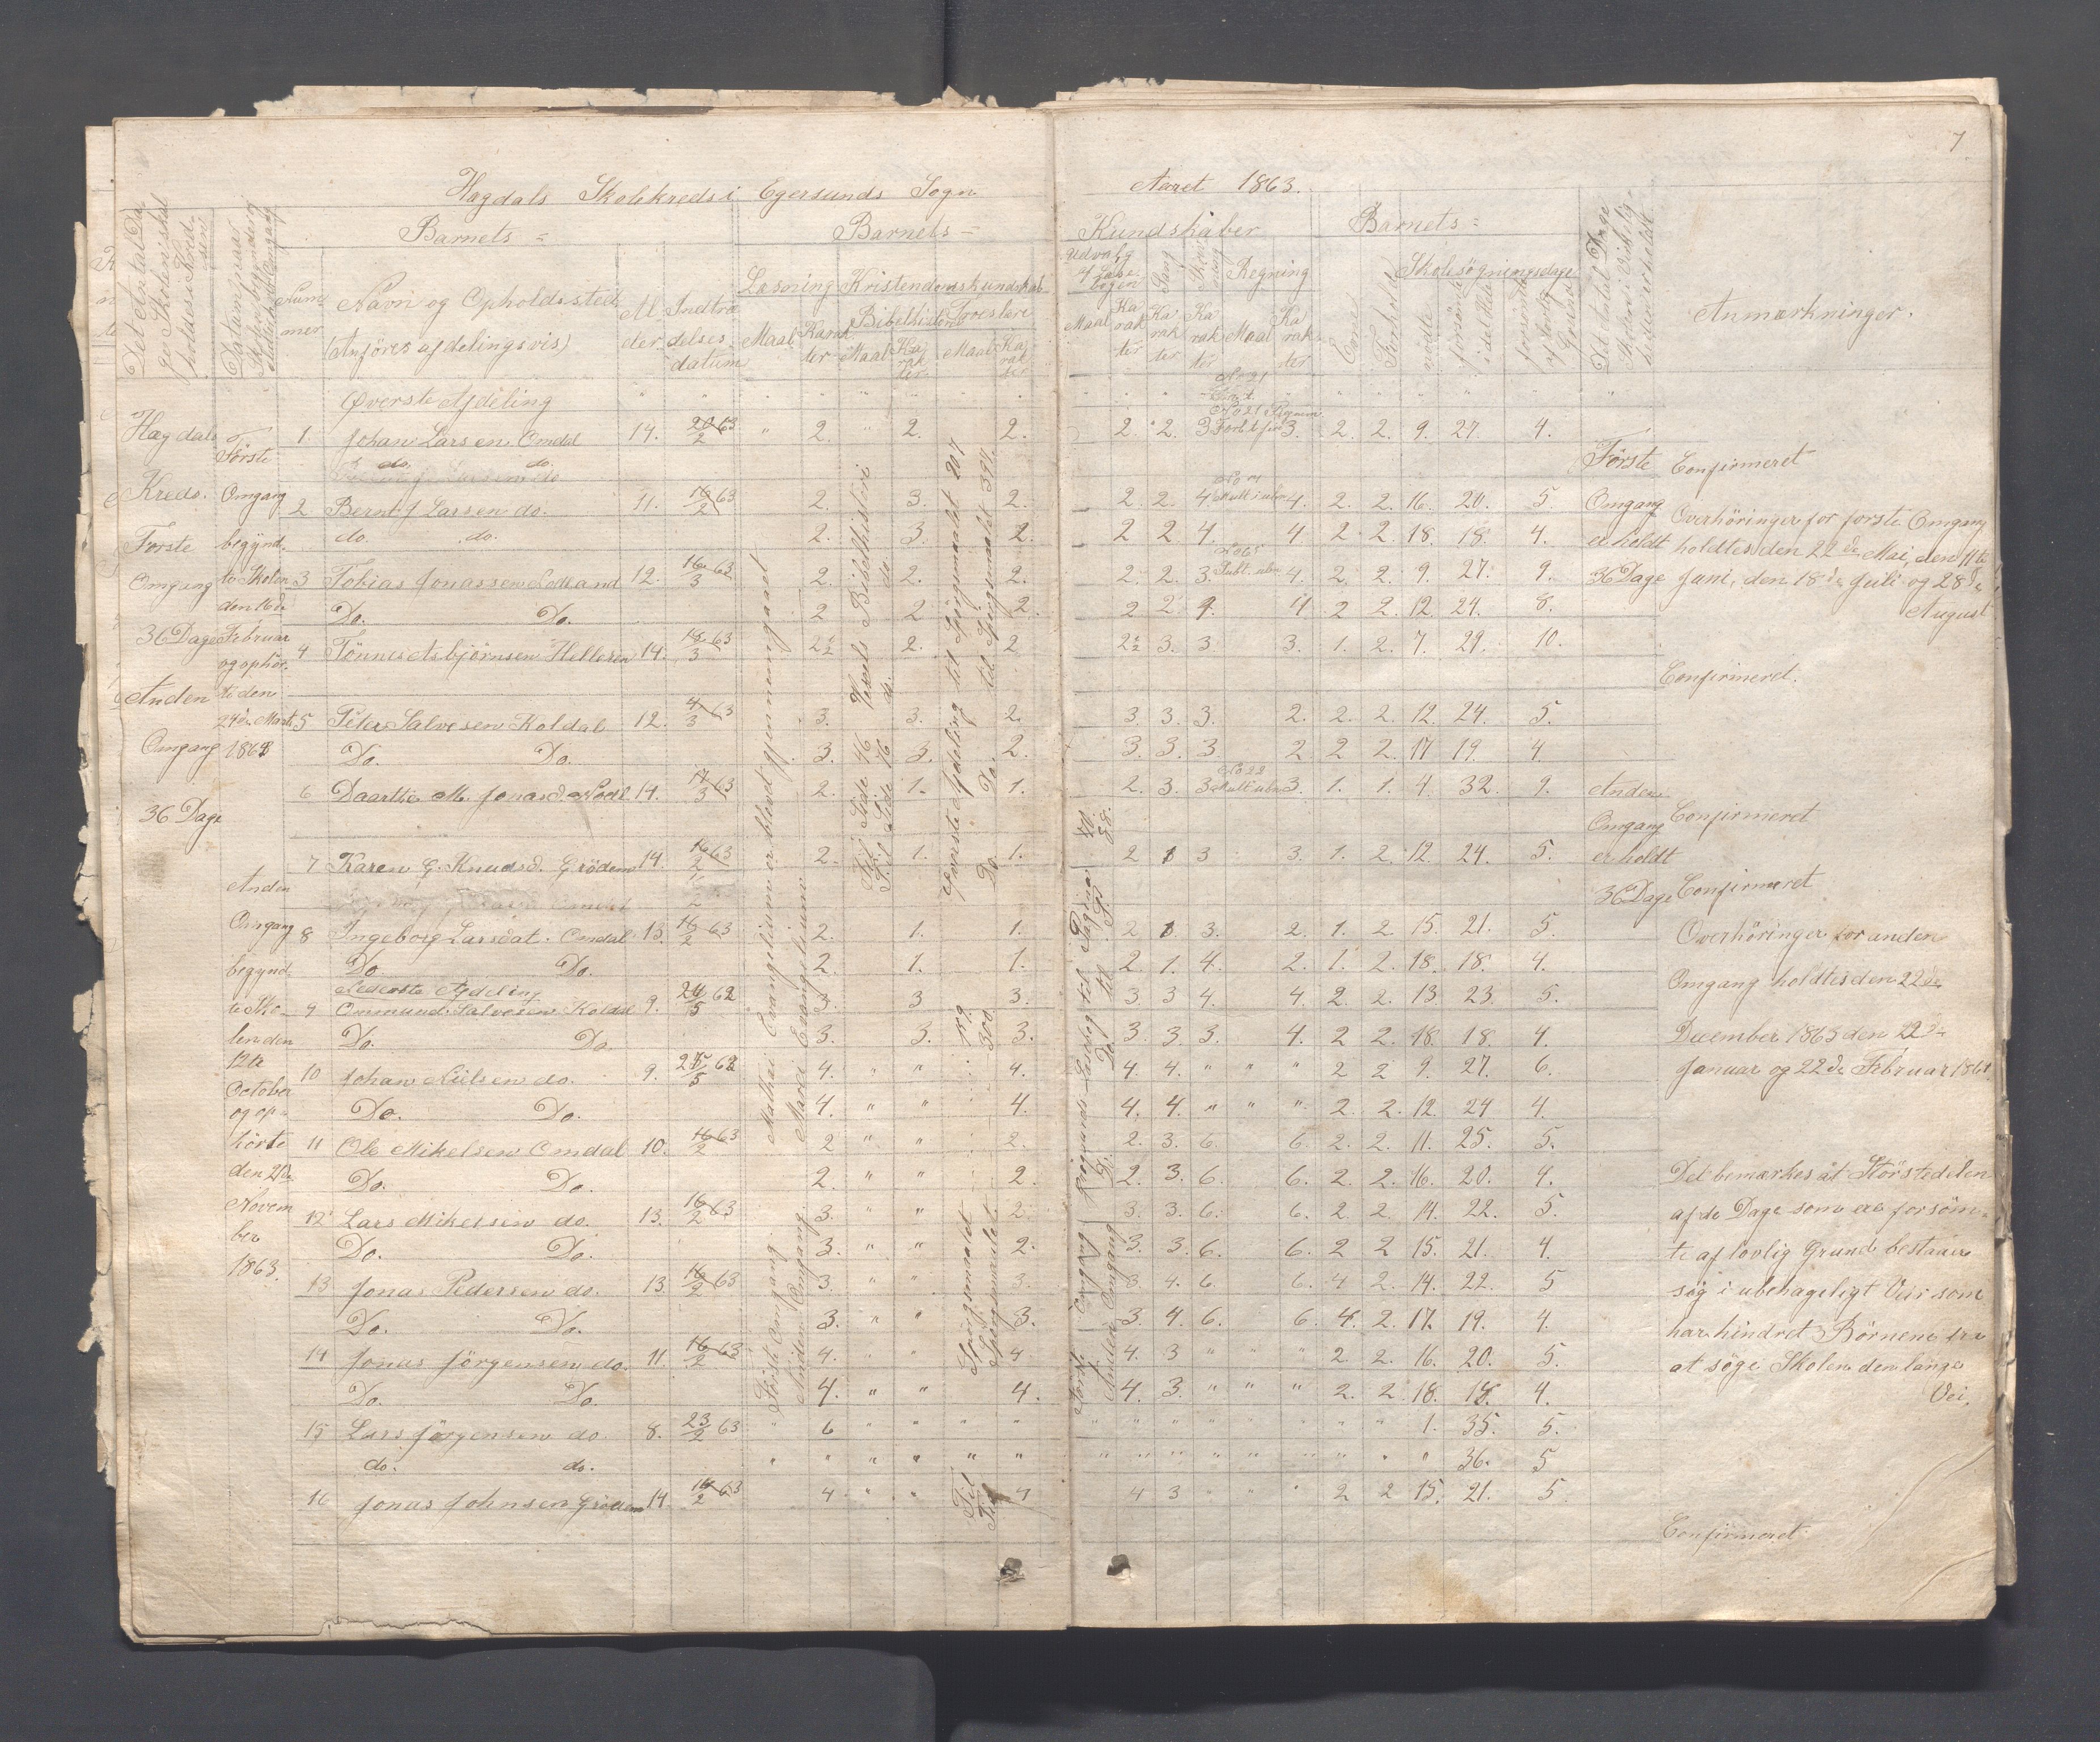 7
Hægdals Skolekreds i Egersunds Sogn
Aaret 1863.
Det Antal Da-
ge Skolen skal
holdes i Kred-
sen
Datum naar
Skolen begynder og
slutter hver Omgang
Barnets =
Num
mer
Navn og Opholdssted
(Anföres afdelingsvis)
Al
der
Indtræ
delses
datum
Barnets =
Læsning
Maal
Karak
ter
Kristendomskundskab
Bibelhistorie
Maal
Ka
rak
ter
Troeslære
Maal
Ka
rak
ter
Kundskaber
Udvalg
af Læse
bogen
Maal
Ka
rak
ter
Sang
Ka
rak
ter
Skriv
ning
Ka
rak
ter
Regning
Maal
Ka
rak
ter
Barnets =
Evne
Forhold
Skolesögningsdage
mødte
forsömte
i det Hele
forsömte
af lovlig
Grund
Det Antal Dage
Skolen i Virkelig-
heden er holdt
Anmærkninger.
Hægdals
Kreds.
Første
Omgang
36 Dage
Anden
Omgang
36 Dage
Første
Omgang
begynd-
te Skolen
den 16de
Februar
og ophör-
te den
24de Marts
1863
Anden
Omgang
begynd-
te Sko-
len den
12te
October
og op-
hörte
den 21de
Novem
ber
1863.
Øverste Afdeling
1. Johan Larsen Omdal 14. 20/2 63 " 2. " 2. 2. 2. 2. 3 3. 2. 2. 9. 27. 4.
do. do.
2 Bernt J Lassen do. 11. 16/2 63 2. 3. 2. 2. 2. 4. 4. 2. 2. 16. 20. 5
do. do. 2. 3. 2. 2 2 4. 4 2 2. 18. 18. 4.
3 Tobias Jonassen 12. 16/3 63 2. 2. 2. 2. 2. 3. 4. 2. 2. 9. 27. 9.
Do. Do. 2 2 2. 2 2 4. 4 2 2. 12. 24. 8.
4 Tönnes Asbjörnsen Hellesen 14. 18/3 63 2 1/2 2. 2 2 1/2 3. 3. 3. 1. 2. 7. 29. 10.
5 Peder Salvesen Koldal 12. 4/3 63 3. 3. 2. 3. 3. 3. 2. 2. 2. 12. 24. 5.
Do. Do. 3. 3. 2. 3. 3. 3. 2 2 2. 17 19. 4.
6 Daarthe M. Jonasd. 14. 17/3 63 2. 1. 1. 2. 3. 3 3. 1. 1. 4. 32. 9.
7 Karen G. Knudsd. Grödem 14. 16/2 63 2. 1. 1. 2 1 3 3. 1. 2. 12. 24. 5.
8 Ingeborg Larsdat. Omdal 13. 16/2 63 2. 1. 1. 2 1 3. 2. 1. 2 15. 21. 5.
Do. Do. 2. 1. 1. 2. 1. 4. 2. 1. 2. 18. 18. 4.
Nederste Afdeling
9 Ommund Salvesen Koldal 9. 24/5 62 3. 3 3. 3. 3 4. 4. 2 2. 13. 23. 5.
Do. Do. 3. 3. 3. 3. 3 3 4. 2 2. 18. 18. 4.
10 Johan Nielsen do. 9. 24/5 62 4. " " 4. 4. 4. " " " 2 2 9. 27. 6.
Do. Do. 4. " " 4. 4. 4. " " " 2. 2. 12. 24 4.
11 Ole Mikelsen Omdal 10. 16/2 63 2 " " 2. 2. 3. 6. 6. 2. 2. 11. 25. 5.
Do. Do. 2. " " 2. 2. 3. 6. 6. 2. 2. 16. 20. 4.
12 Lars Mikelsen do. 13. 16/2 63 3. " " 2. 3. 3. 6. 6. 2. 2. 14. 22. 5.
Do. Do. 3. " " 2. 3. 3. 6. 6. 2 2 15. 21. 4.
13 Jonas Pedersen do. 13. 16/2 63 3. " " 3. 3. 4. 6. 6. 4 2. 14. 22. 5
Do. Do. 3. " " 3. 3. 4. 6. 6. 4. 2. 17. 19. 4.
14 Jonas Jörgensen do. 11. 16/2 63 4. " " 4 4. 3 " " " 2. 2. 16. 20. 5.
Do. Do. 4. " " 4. 4. 3. " " " 2. 2. 18. 18. 4.
15 Lars Jörgensen do. 8. 23/2 63 " 6 " " " " " " " " " " " " 1. 35. 5.
do. do. " " " " " " " " " " " " " " " 36. 5
16 Jonas Johnsen Grödem 14. 16/2 63 4 " " 4 4 3 " " " 2 2 15. 21. 5.
Første Omgang Mathæi Evangelium er blevet gjennemgaaet
Anden Omgang Marci Evangelium
Vogts Bibelhistori Til Side 46
Til Side 76
Øverste Afdeling til Spörgsmaalet 207
Do. til Spörgsmaalet 391.
Til Spörgsmaalet 159.
Til Spörgsmaalet 300
Første Omgang
Læsebog til Pagina 50.
Anden Omgang D. Do. til P. 88.
Første
Omgang
er holdt
36 Dage
Anden
Omgang
er holdt
36 Dage
Confirmeret
Overhöringer for første Omgang
holdtes den 22de Mai, den 11te
Juni, den 18de Juli og 28de
August
Confirmeret.
Confirmeret
Confirmeret
Overhöringer for anden
Omgang holdtes den 22de
December 1863 den 22de
Januar og 22de Februar 1864.
Det bemærkes at Störstedelen
af de Dage som ere forsöm-
te af lovlig Grund bestaaer
sig i ubehageligt Veir som
har hindret Börnene fra
at söge Skolen den lange
Vei.
Confirmeret